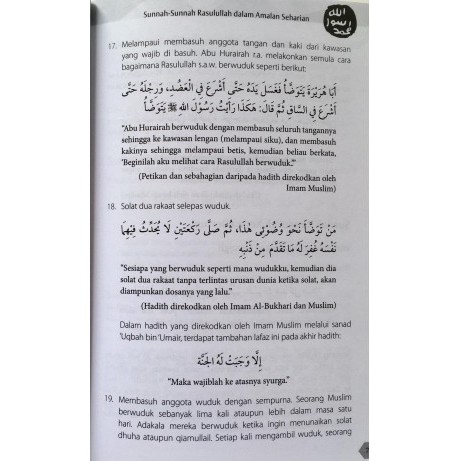 Sunnah-Sunnah Rasulullah dalam Amalan Seharian
الله
رسول
محمد
17. Melampaui membasuh anggota tangan dan kaki dari kawasan
yang wajib di basuh. Abu Hurairah r.a. melakonkan semula cara
bagaimana Rasulullah s.a.w. berwuduk seperti berikut:
أَبَا هُرَيْرَةَ يَتَوَضَّأُ فَغَسَلَ يَدَهُ حَتَّى أَشْرَعَ فِي الْعَضُدِ، وَرِجْلَهُ حَتَّى
أَشْرَعَ فِي السَّاقِ ثُمَّ قَالَ: هَكَذَا رَأَيْتُ رَسُوْلَ اللهِ ﷺ يَتَوَضَّأُ
"Abu Hurairah berwuduk dengan membasuh seluruh tangannya
sehingga ke kawasan lengan (melampaui siku), dan membasuh
kakinya sehingga melampaui betis, kemudian beliau berkata,
'Beginilah aku melihat cara Rasulullah berwuduk.'"
(Petikan dan sebahagian daripada hadith direkodkan oleh
Imam Muslim)
18. Solat dua rakaat selepas wuduk.
مَنْ تَوَضَّأَ نَحْوَ وُضُوْئِى هٰذَا، ثُمَّ صَلَّى رَكْعَتَيْنِ لَا يُحَدِّثُ فِيْهِمَا
نَفْسَهُ غُفِرَ لَهُ مَا تَقَدَّمَ مِنْ ذَنْبِهِ
"Sesiapa yang berwuduk seperti mana wudukku, kemudian dia
solat dua rakaat tanpa terlintas urusan dunia ketika solat, akan
diampunkan dosanya yang lalu."
(Hadith direkodkan oleh Imam Al-Bukhari dan Muslim)
Dalam hadith yang direkodkan oleh Imam Muslim melalui sanad
'Uqbah bin 'Umair, terdapat tambahan lafaz ini pada akhir hadith:
إِلَّا وَجَبَتْ لَهُ الْجَنَّةُ
"Maka wajiblah ke atasnya syurga."
19. Membasuh anggota wuduk dengan sempurna. Seorang Muslim
berwuduk sebanyak lima kali ataupun lebih dalam masa satu
hari. Adakala mereka berwuduk ketika ingin menunaikan solat
dhuha ataupun qiamullail. Setiap kali mengambil wuduk, seorang